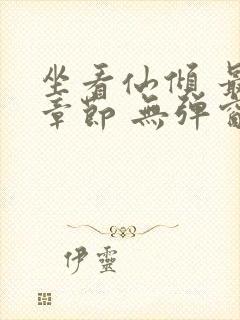 坐看仙傾 最
章節 無彈窗
伊靈